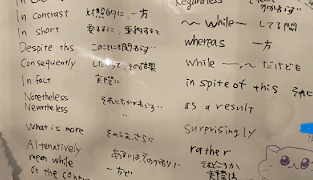 In contrast 対照的に、一方
In short 要するに、要約すると
Despite this このことにも関わらず
Consequently その結果
In fact 実際に
Nonetheless
Nevertheless それにもかかわらず
What is more そのうえ、さらに
Alternatively あるいはその代わりに
mean while 一方で
On the cont
Regardless
〜 while 〜 してる間
whereas 一方
While 〜, 〜 だけども
in spite of this それに
as a result
surprisingly
rather それどころか
実際は